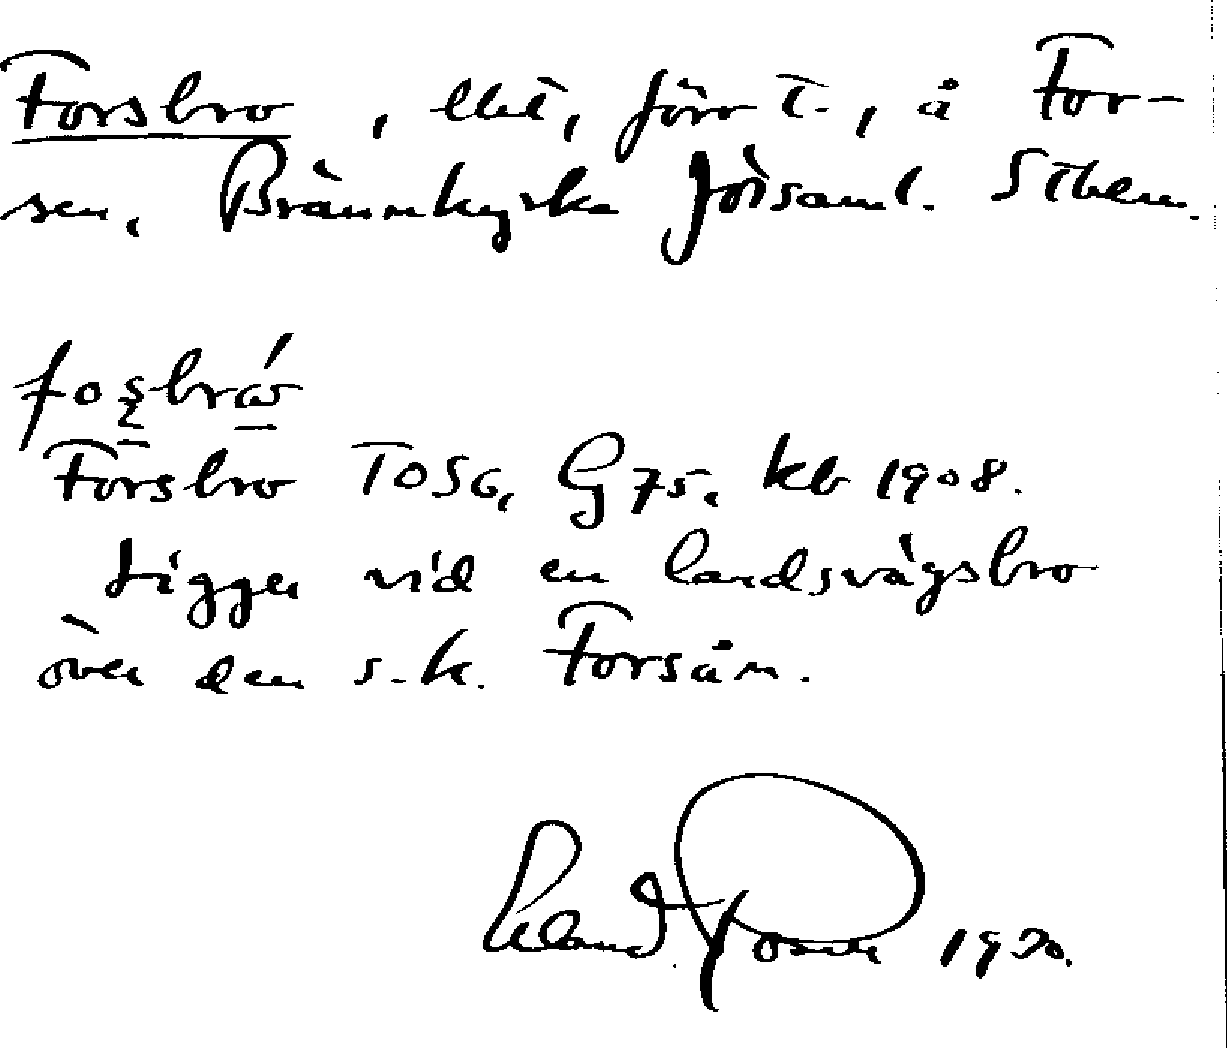 Forsbro, lht, förr t., å For-
sen, Brännkyrka förs​aml. Sthlm.
foşbrώ
Forsbro TOSG, G 75, kb 1908.
Ligger vid en landsvägsbro
över den s.k. Forsån.
1930.